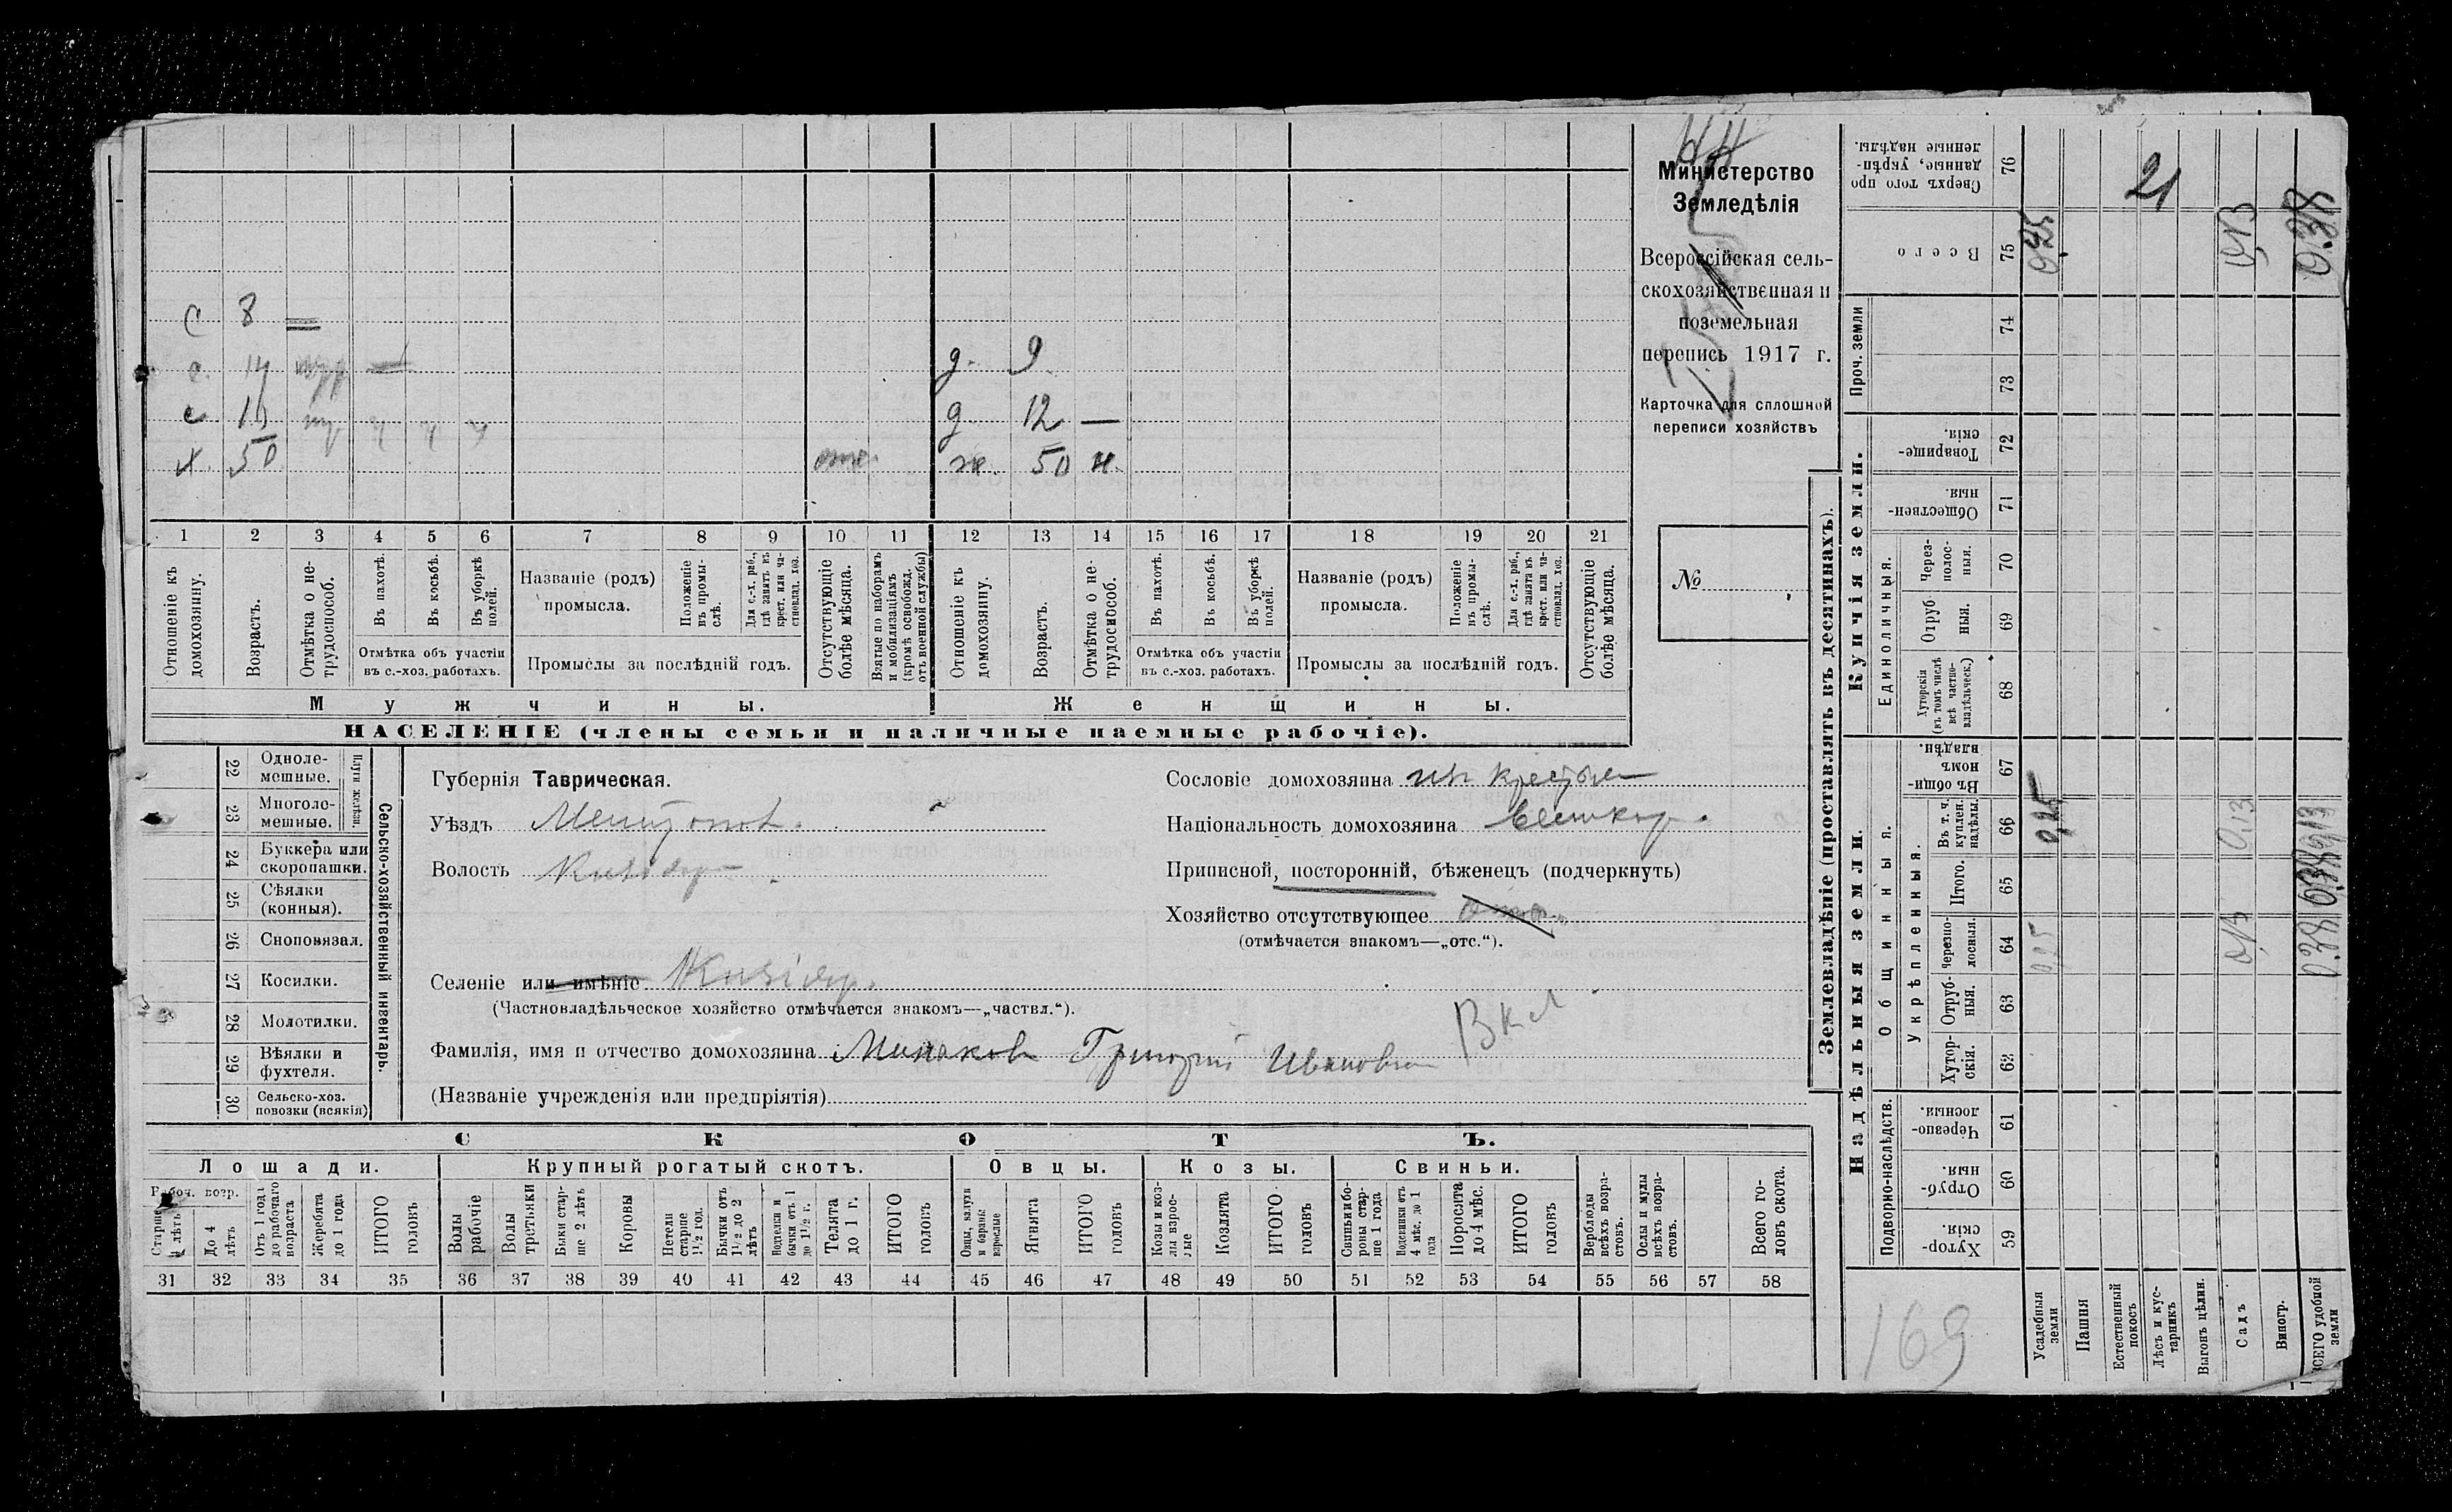 С 8 —
с. 14
с
х. 50 отс.
д. 9
д. 12 —
ж. 50 н.
1 2 3 4 5 6 7 8 9 10 11 12 13 14 15 16 17 18 19 20 21
Отношеніе къ домохозяину.
Возрастъ.
Отмѣтка о не-трудоспособ.
Въ пахотѣ.
Въ косьбѣ.
Въ уборкѣ полей.
Отмѣтка объ участіи въ с.-хоз. работахъ.
Названіе (родъ) промысла.
Положеніе въ промы-слѣ.
Для с.-х. раб., гдѣ занятъ въ крест. или ча-стновлад. хоз.
Промыслы за послѣдній годъ.
Отсутствующіе болѣе мѣсяца.
Взятые по наборамъ и мобилизаціямъ (кромѣ освобожд. отъ военной службы)
Отношеніе къ домохозяину.
Возрастъ.
Отмѣтка о не-трудоспособ.
Въ пахотѣ.
Въ косьбѣ.
Въ уборкѣ полей.
Отмѣтка объ участіи въ с.-хоз. работахъ.
Названіе (родъ) промысла.
Положеніе въ промы-слѣ.
Для с.-х. раб., гдѣ занята въ крест. или ча-стновлад. хоз.
Промыслы за послѣдній годъ.
Отсутствующіе болѣе мѣсяца.
Мужчины.
Женщины.
НАСЕЛЕНІЕ (члены семьи и наличные наемные рабочіе).
Министерство
Земледѣлія
Всероссійская сель-
скохозяйственная и
поземельная
перепись 1917 г.
Карточка для сплошной
переписи хозяйствъ
№
22 Одноле-мешные.
23 Многоле-мешные.
Плуги желѣзн.
24 Буккера или скоропашки.
25 Сѣялки (конныя).
26 Сноповязал.
27 Косилки.
28 Молотилки.
29 Вѣялки и фухтеля.
30 Сельско-хоз. повозки (всякія)
Сельско-хозяйственный инвентарь.
Губернія Таврическая.
Уѣздъ Мелитопол.
Волость Кизіяр
Селеніе или имѣніе Кизіяр.
(Частновладѣльческое хозяйство отмѣчается знакомъ—„частвл.“).
Фамилія, имя и отчество домохозяина Минаковъ Григорій Иванович
(Названіе учрежденія или предпріятія)
Сословіе домохозяина изъ крестьян
Національность домохозяина Великор.
Приписной, посторонній, бѣженецъ (подчеркнуть)
Хозяйство отсутствующее отс.
(отмѣчается знакомъ—„отс.“).
Вкл
СКОТЪ.
Лошади.
Крупный рогатый скотъ.
Овцы.
Козы.
Свиньи.
Рабоч. возр.
Старше 4 лѣтъ
До 4 лѣтъ
Отъ 1 года до рабочаго возраста
Жеребята до 1 года
ИТОГО головъ
Волы рабочіе
Волы третьяки
Быки стар-ше 2 лѣтъ
Коровы
Нетели старше 1½ год.
Бычки отъ 1½ до 2 лѣтъ
Подтелки и бычки отъ 1 до 1½ г.
Телята до 1 г.
ИТОГО головъ
Овцы, валухи и бараны взрослые
Ягнята
ИТОГО головъ
Козы и коз-лы взрос-лые
Козлята
ИТОГО головъ
Свиньи и бо-ровы стар-ше 1 года
Подсвинки отъ 4 мѣс. до 1 года
Поросята до 4 мѣс.
ИТОГО головъ
Верблюды всѣхъ возра-стовъ.
Ослы и мулы всѣхъ возра-стовъ.
Всего го-ловъ скота.
31 32 33 34 35 36 37 38 39 40 41 42 43 44 45 46 47 48 49 50 51 52 53 54 55 56 57 58
Землевладѣніе (проставлять въ десятинахъ).
Сверхъ того про данные, укрѣп-ленные надѣлы. 76
21
Всего 75
0,25
0,13
0.38
Проч. земли
74
73
Купчія земли.
Товарище-скія. 72
Обществен-ныя. 71
Единоличныя.
Через-полос-ныя. 70
Отруб ныя. 69
Хуторскія (въ томъ числѣ всѣ частно-владѣльческ.) 68
Надѣльныя земли.
Общинныя.
Въ общи номъ владѣн. 67
Укрѣпленныя.
Въ т. ч. куплен. надѣлы. 66
0,25
0,13
Итого. 65
Черезпо-лосныя. 64
0,25
0,13
0.38
Отруб-ныя. 63
Хутор-скія. 62
Подворно-наслѣдств.
Черезпо-лосныя. 61
Отруб-ныя. 60
Хутор-скія. 59
Усадебныя земли
Пашня
Естественный покосъ
Лѣсъ и кус-тарникъ
Выгонъ цѣлин.
Садъ
Виногр.
ВСЕГО удобной земли
169